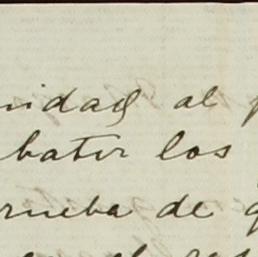 nidad al p
batir los
rueba de q